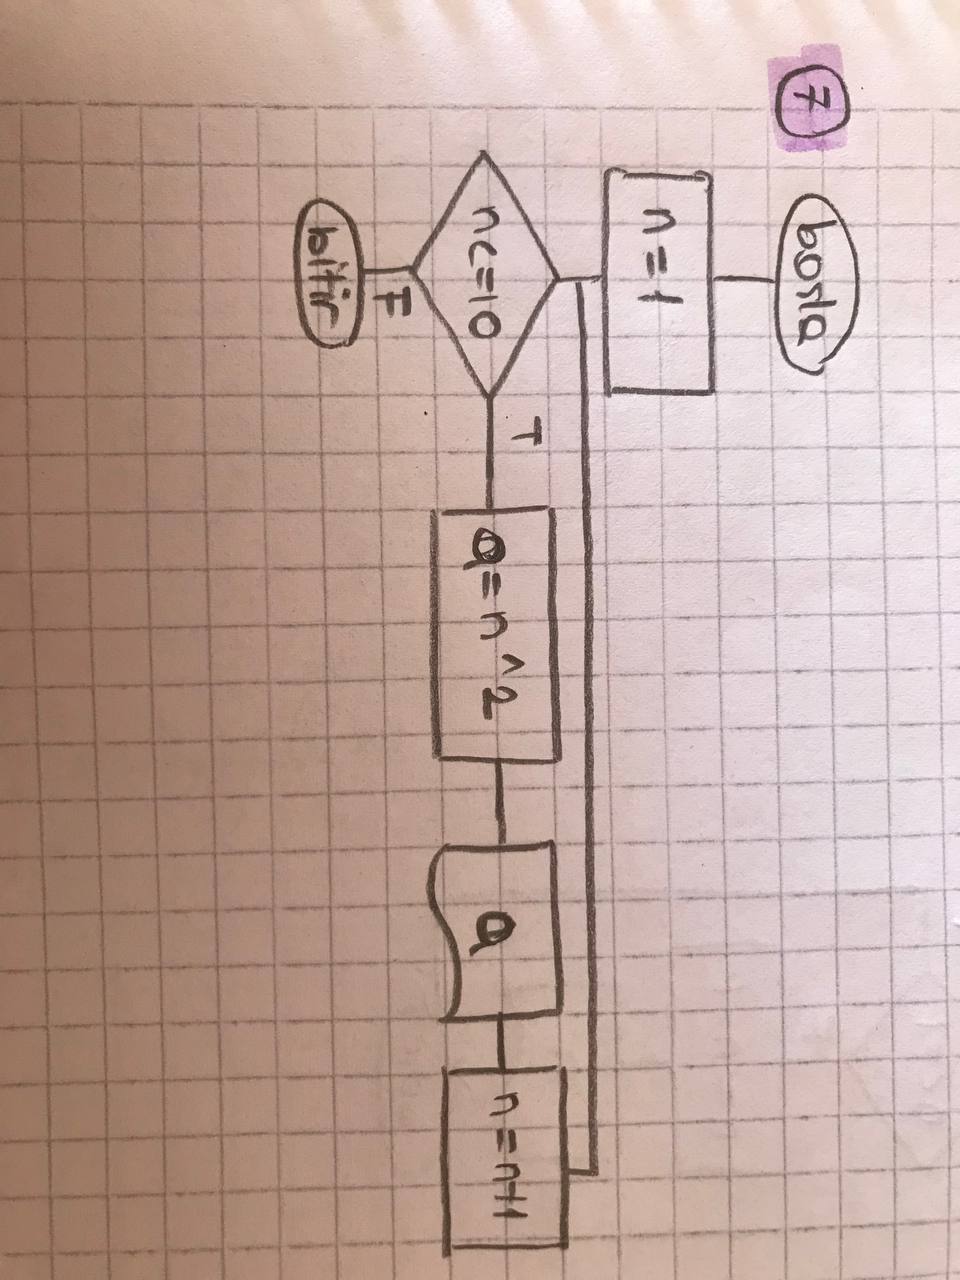 7
başla
n=1
n<=10
T
a=n^2
a
n=n+1
F
bitir